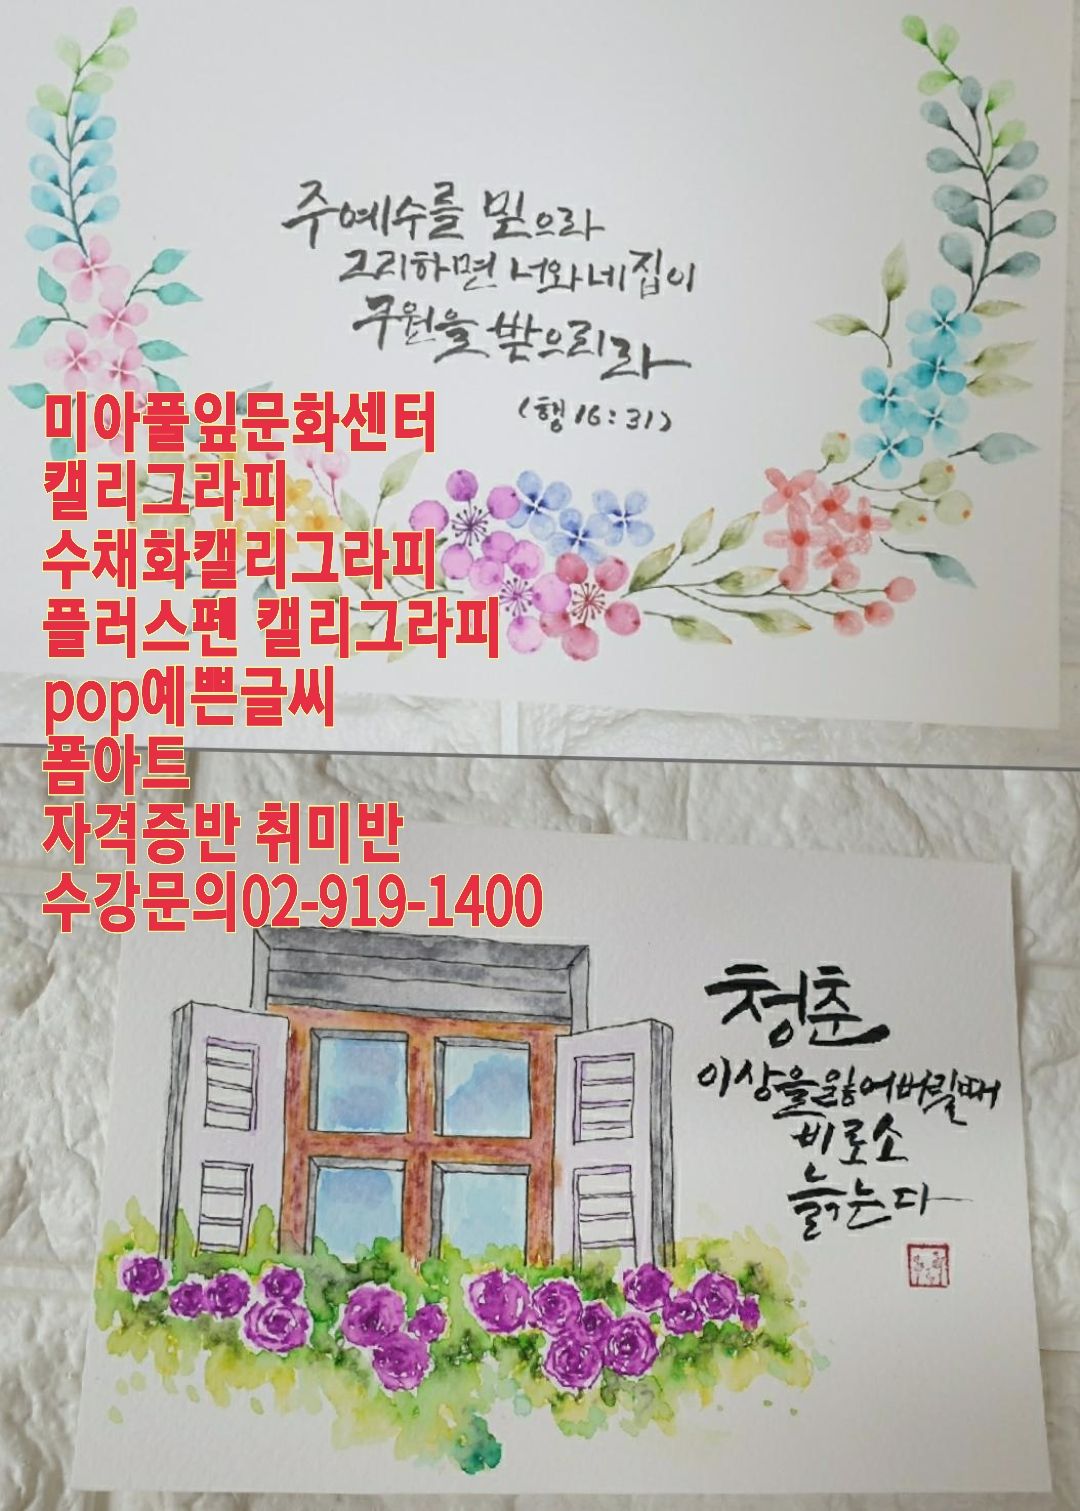 주예수를 믿으라
그리하면 너와 네 집이
구원을 받으리라
(행 16:31)
미아풀잎문화센터
캘리그라피
수채화캘리그라피
플러스펜 캘리그라피
pop예쁜글씨
폼아트
자격증반 취미반
수강문의02-919-1400
청춘
이상을 잃어버릴때
비로소
늙는다